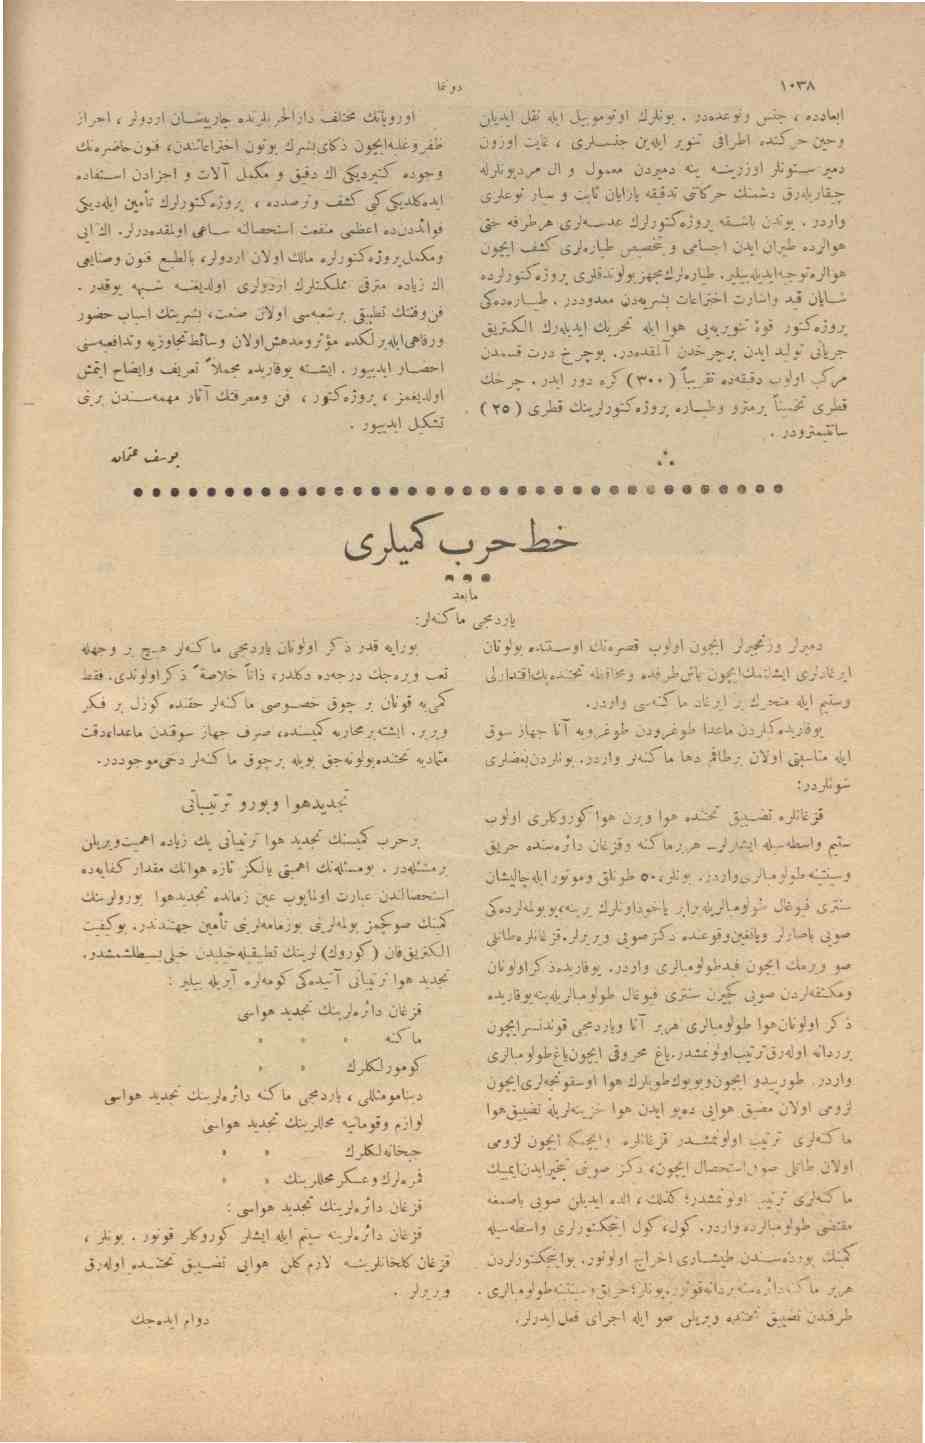 ١٠٣٨
دوننما
ابعادده ، جنس ونوعده‌در . بونلرك اوتوموبيل ايله نقل ايديلن
وحين حركتده اطرافى تنوير ايله‌ين جنسلرى ، غايت اوزون
دمير ستونلر اوزرينه ينه دميردن معمول و ال مرديونلرله
چيقاريله‌رق دشمنك حركاتنى تدقيقه يارايان ثابت و سيار نوعلرى
واردر . بوندن باشقه پروژه‌كتورلرك عدسه‌لرى هر طرفه حتى
هوالرده طيران ايدن اجسامى و بخصيص طياره‌لرى كشف ايچون
هوالره توجيه ايديله‌بيلير . طياره‌لرك مجهز بولوندقلرى پروژه‌كتورلرده
شايان قيد واشارت اختراعات بشريه‌دن معدوددر . طياره‌ده‌كى
پروژه‌كتور قوۀ تنويريه‌يى هوا ايله تحريك ايديله‌رك الكتريق
جريانى توليد ايدن برچرخدن آلمقده‌در. بوچرخ درت قسمدن
مركب اولوب دقيقه‌ده تقريباً (٣٠٠) كره دور ايدر . چرخك
قطرى تخميناً برمترو وطياره پروژه‌كتورلرينك قطرى (٢٥)
سانتيمترودر .
اوروپانك مختلف دارالحربلرنده چارپيشان اردولر ، احراز
ظفر وغلبه‌ايچون ذكاى بشرك بوتون اختراعاتندن، فنون حاضره‌نك
وجوده كتيرديكى اك دقيق و مكمل آلات و اجزادن استفاده
ايده‌كلديكى كبى كشف وترصدده ، پروژه‌كتورلرك تأمين ايله‌ديكى
فوائددن‌ده اعظمى منفعت استحصالنه ساعى اولمقده‌درلر. اك ايى
ومكمل پروژه‌كتورلره مالك اولان اردولر، بالطبع فنون وصنايعى
اك زياده مترقى مملكتلرك اردولرى اولديغنه شبهه يوقدر .
فن وفنك تطبيقى برشعبه‌سى اولان صنعت، بشريتك اسباب حضور
ورفاهى ايله برلكده مؤثر ومدهش اولان وسائط تجاوزيه وتدافعيه‌سنى
احضار ايدييور . ايشته يوقاريده مجملاً تعريف وايضاح ايتمش
اولديغمز ، پروژه‌كتور ، فن ومعرفتك آثار مهمه‌سندن برينى
تشكيل ايدييور .
يوسف عثمان
خط حرب كميلرى
مابعد
ياردمجى ماكنه‌لر:
دميرلر وزنجيرلر ايچون اولوب قصره‌نك اوستنده بولونان
ايرغادلرى ايشلتمك‌ايچون باش‌طرفده ومحافظه تحتنده‌پك‌اقتدارلى
وستيم ايله متحرك بر ايرغاد ماكنه‌سى واردر.
يوقاريده‌كيلردن ماعدا طوغرودن طوغرويه آنا جهاز سوق
ايله مناسبتى اولان برطاقم دها ماكنه‌لر واردر. بونلردن‌بعضلرى
شونلردر:
قزغانلره تضييق تحتنده هوا ويرن هوا كوروكلرى اولوب
ستيم واسطه‌سيله ايشلرلر. هربرماكنه وقزغان دائره‌سنده حريق
وسنتينه طولومبالرى واردر. بونلر، ٥٠ طونلق وموتور ايله‌چاليشان
سنترى فيوغال طولومبالريله‌برابر ياخوداونلرك برينه، بوبولمه‌لرده‌كى
صويى باصارلر ويانغين‌وقوعنده دكز صويى ويررلر. قزغانلره‌طاتلى
صو ويرمك ايچون فيدطولومبالرى واردر. يوقاريده‌ذكراولونان
ومكثفه‌لردن صويى كچيرن سنترى فيوغال طولومبالريله‌ينه‌يوقاريده
ذكر اولونان‌هوا طولومبالرى هربر آنا وياردمجى قوندنسرايچون
برردانه اوله‌رق‌ترتيب‌اولونمشدر. ياغ محروقى ايچون‌ياغ‌طولومبالرى
واردر. طورپيدو ايچون‌وبويوك‌طوپلرك هوا اوسفونجه‌لرى‌ايچون
لزومى اولان مضيق هوايى دهپو ايدن هوا خزينه‌لريله تضييق‌هوا
ماكنه‌لرى ترتيب اولونمشدر قزغانلره وايچمكه ايچون لزومى
اولان طاتلى صوى‌استحصال ايچون، دكز صوينى تبخيرايدن‌ايميك
ماكنه‌لرى ترتيب اولونمشدر؛ كذلك، الده ايديلن صويى باصمغه
مقتضى طولومبالرده واردر. كول، كول انجكتورلرى واسطه‌سيله
كمينك بورده‌سندن طيشارى اخراج اولونور. بوانجكتورلردن
هربر ماكنه‌دائره‌سنه‌بردانه‌قونور. بونلر؛ حريق وسنتينه‌طولومبالرى .
طرفندن تضييق تحتنده ويريلن صو ايله اجراى فعل‌ايدرلر.
بورايه قدر ذكر اولونان ياردمجى ماكنه‌لر هيچ بر وجهله
تعب ويره‌جك درجه‌ده دكلدر، ذاتاً خلاصةً ذكراولوندى. فقط
كمى‌يه قونان بر چوق خصوصى ماكنه‌لر حقنده كوزل بر فكر
ويرر. ايشته‌برمحاربه كميسنده، صرف جهاز سوقندن ماعدا، دقت
متماديه تحتنده‌بولونه‌جق بويله برچوق ماكنه‌لر دخى‌موجوددر.
تجديدهوا وبورو ترتيباتى
برحرب كميسنك تجديد هوا ترتيباتى پك زياده اهميت‌ويريلن
برمسئله‌در . بومسئله‌نك اهميتى يالكز تازه هوانك مقدار كفايه‌ده
استحصالندن عبارت اولمايوب عين زمانده تجديدهوا بورولرينك
كمينك صوكچمز بولمه‌لرينى بوزمامه‌لرينى تأمين جهتندندر. بوكيفيت
الكتريق‌فان (كوروك) لرينك تطبيقيله‌خيليدن خيلى‌بسطلشمشدر.
تجديد هوا ترتيباتى آتيده‌كى كومه‌لره آيريله بيلير :
قزغان دائره‌لرينك تجديد هواسى
ماكنه » » »
كومورلكلرك » »
دينامومثللى ، ياردمجى ماكنه دائره‌لرينك تجديد هواسى
لوازم وقومانيه محللرينك تجديد هواسى
جبخانه‌لكلرك » »
قمره‌لرك وعسكر محللرينك » »
قزغان دائره‌لرينك تجديد هواسى :
قزغان دائره‌لرينه ستيم ايله ايشلر كوروكلر قونور . بونلر ،
قزغان كلخانلرينه لازم كلن هوايى تضييق تحتنده اوله‌رق
ويررلر .
دوام ايده‌جك